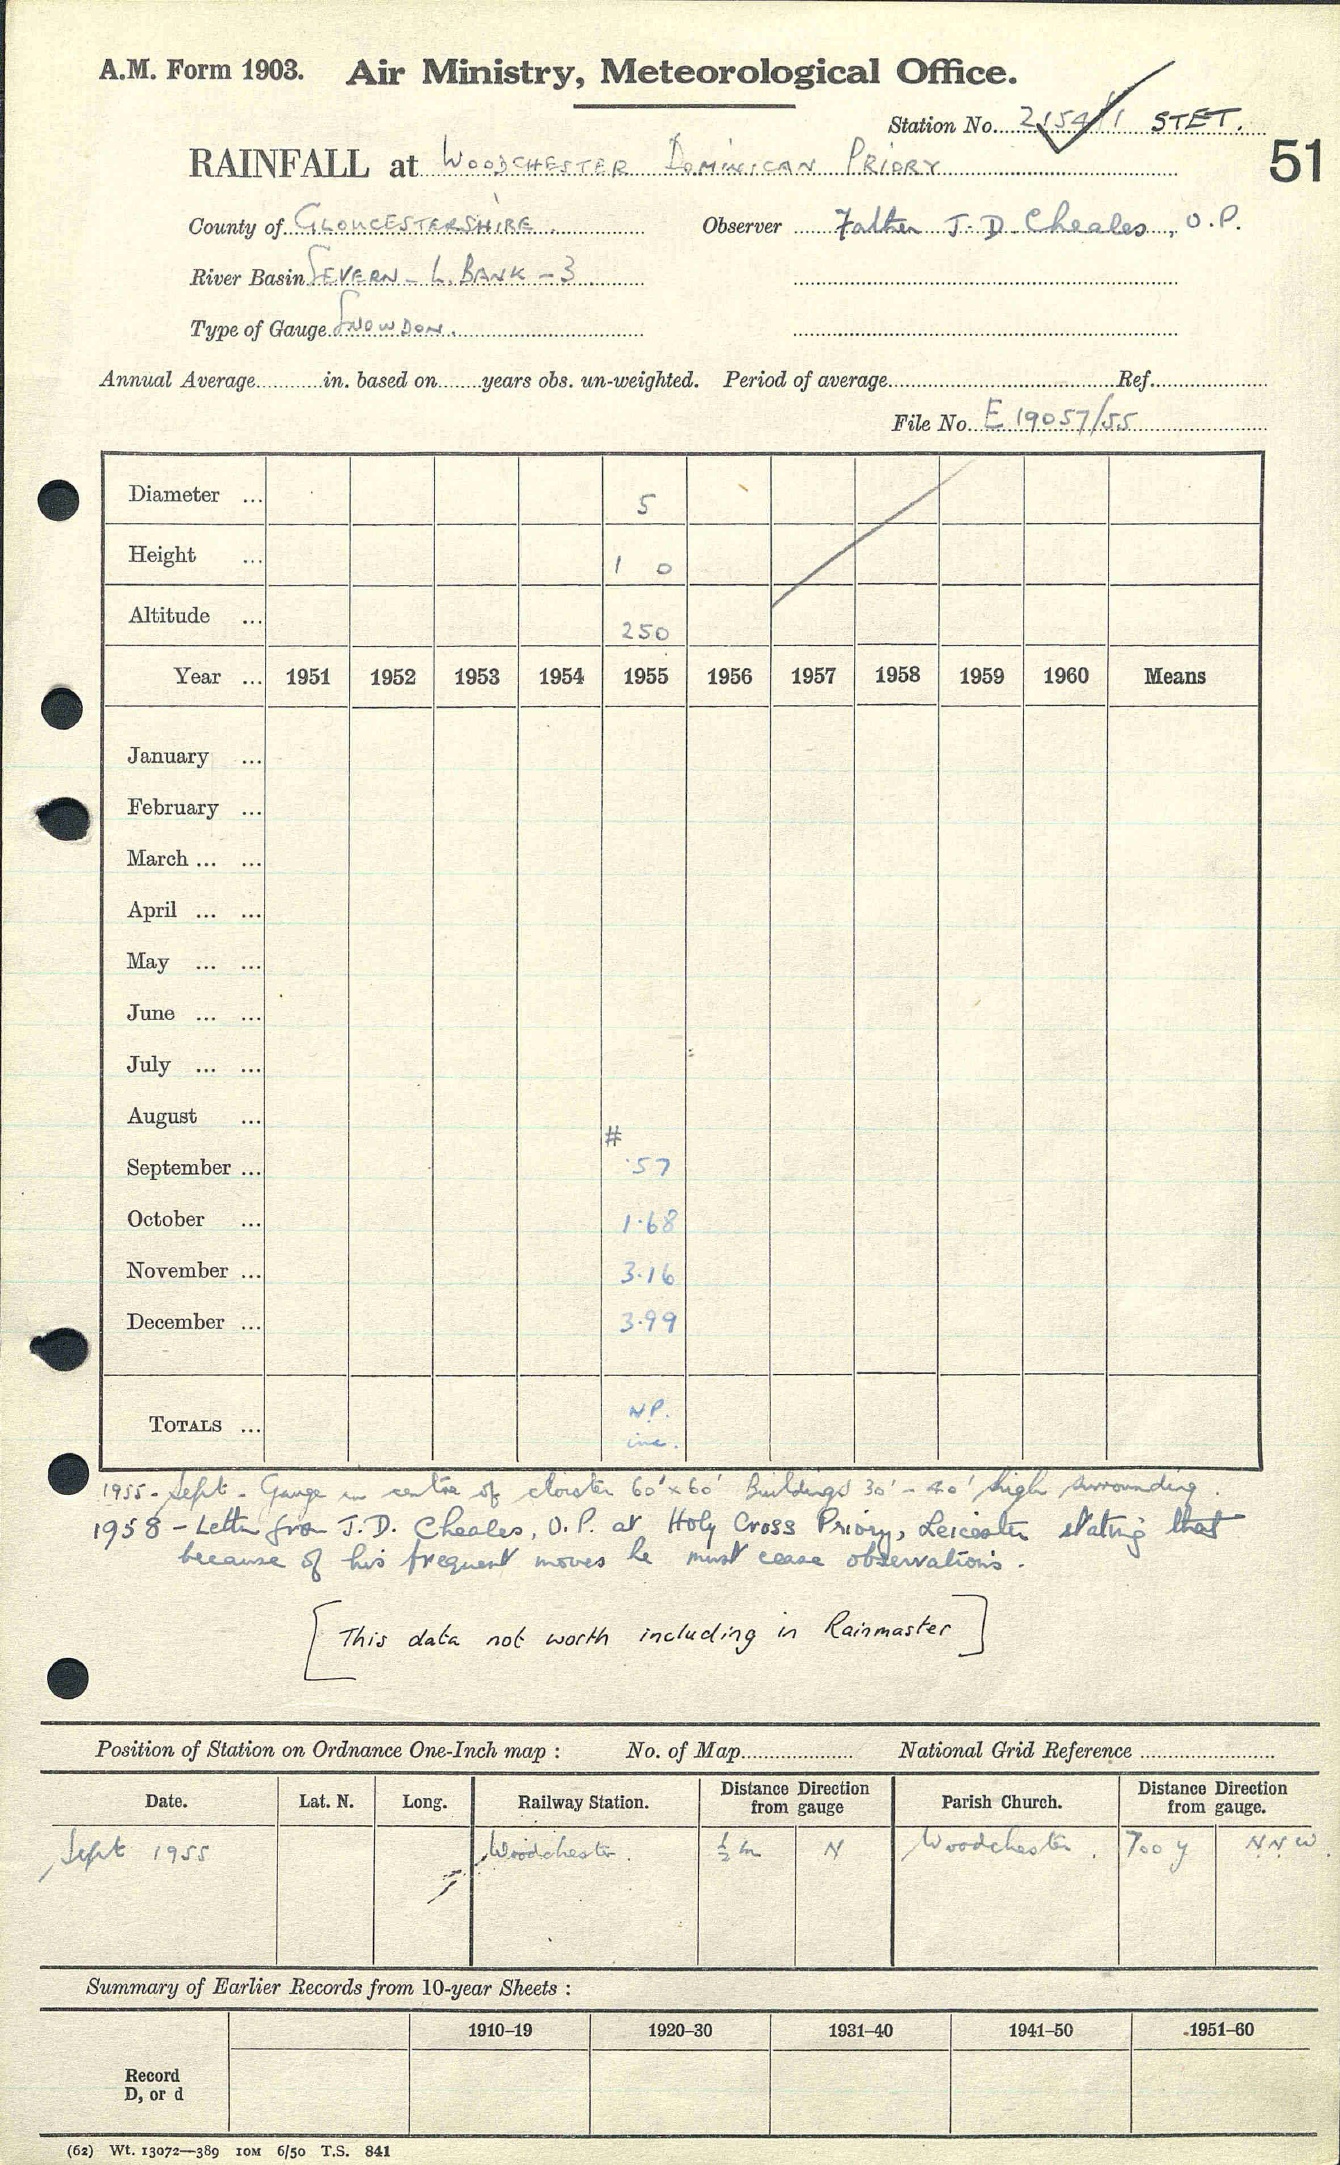 A.M. Form 1903. Air Ministry, Meteorological Office.
Station No. 2154/1 STET.
RAINFALL at WOODCHESTER DOMINICAN PRIORY
51
County of GLOUCESTERSHIRE. Observer Father J. D. Cheales, O.P.
River Basin SEVERN - L. BANK - 3
Type of Gauge SNOWDON.
Annual Average..........in. based on.......years obs. un-weighted. Period of average.......... Ref..........
File No. E 19057/55
Diameter ... 5
Height ... 1 0
Altitude ... 250
Year ... 1951 1952 1953 1954 1955 1956 1957 1958 1959 1960 Means
January ...
February ...
March ... ...
April ... ...
May ... ...
June ... ...
July ... ...
August ...
#
September ... ·57
October ... 1·68
November ... 3·16
December ... 3·99
TOTALS ... N.P.
inc.
1955 - Sept - Gauge in centre of cloister 60' x 60' Buildings 30' - 40' high surrounding.
1958 - Letter from J.D. Cheales, O.P. at Holy Cross Priory, Leicester stating that
because of his frequent moves he must cease observations.
[This data not worth including in Rainmaster]
Position of Station on Ordnance One-Inch map : No. of Map.......... National Grid Reference ..........
Date. Lat. N. Long. Railway Station. Distance Direction from gauge Parish Church. Distance Direction from gauge.
Sept 1955 Woodchester. ½ m N Woodchester. 700 y N.N.W.
Summary of Earlier Records from 10-year Sheets :
1910–19 1920–30 1931–40 1941–50 1951–60
Record
D, or d
(62) Wt. 13072—389 10M 6/50 T.S. 841